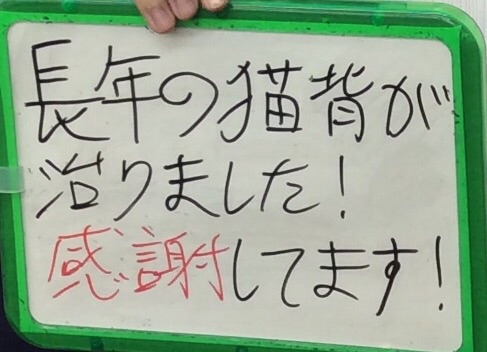 長年の猫背が
治りました!
感謝してます!